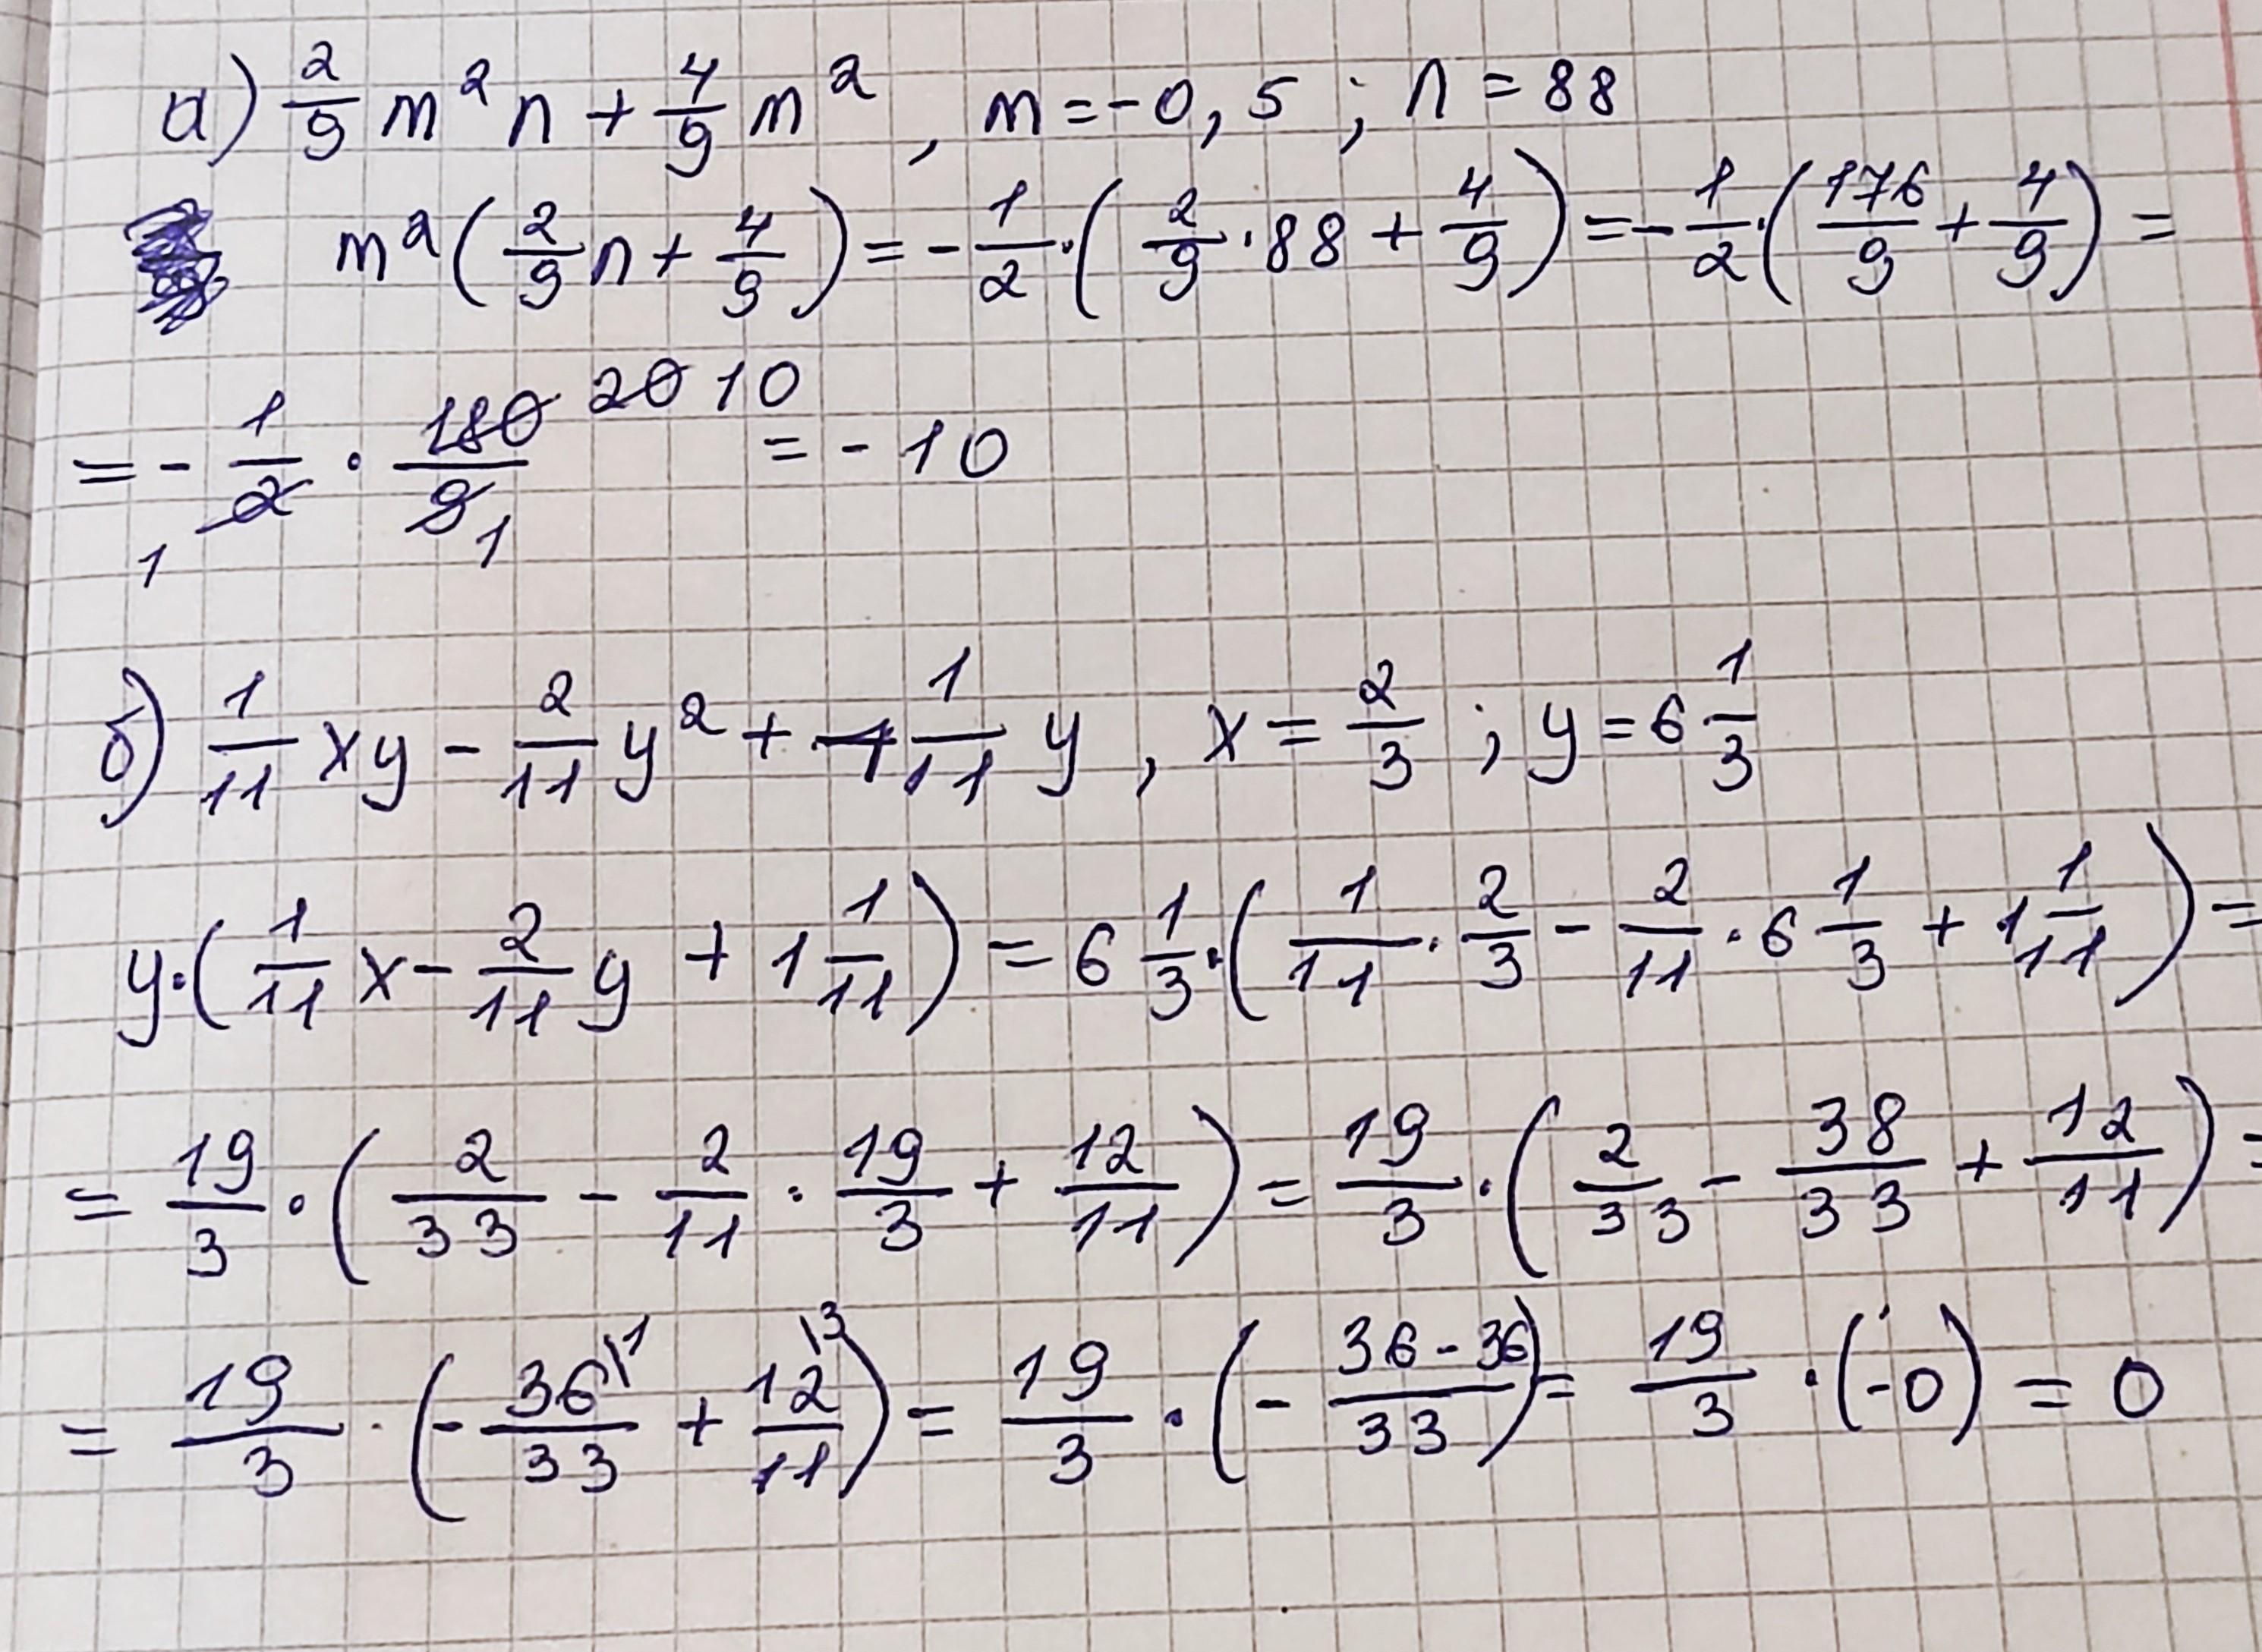 а) 2/9 m² n + 4/9 m² , m = -0,5 ; n = 88
m² (2/9 n + 4/9) = - 1/2 · (2/9 · 88 + 4/9) = - 1/2 · (176/9 + 4/9) =
= - 1/2 · 180/9 20 10 = - 10
1 1
б) 1/11 xy - 2/11 y² + 1 1/11 y , x = 2/3 ; y = 6 1/3
y · (1/11 x - 2/11 y + 1 1/11) = 6 1/3 · (1/11 · 2/3 - 2/11 · 6 1/3 + 1 1/11) =
= 19/3 · (2/33 - 2/11 · 19/3 + 12/11) = 19/3 · (2/33 - 38/33 + 12/11) =
= 19/3 · (- 36\1/33 + 12\3/11) = 19/3 · (- 36-36/33) = 19/3 · (-0) = 0